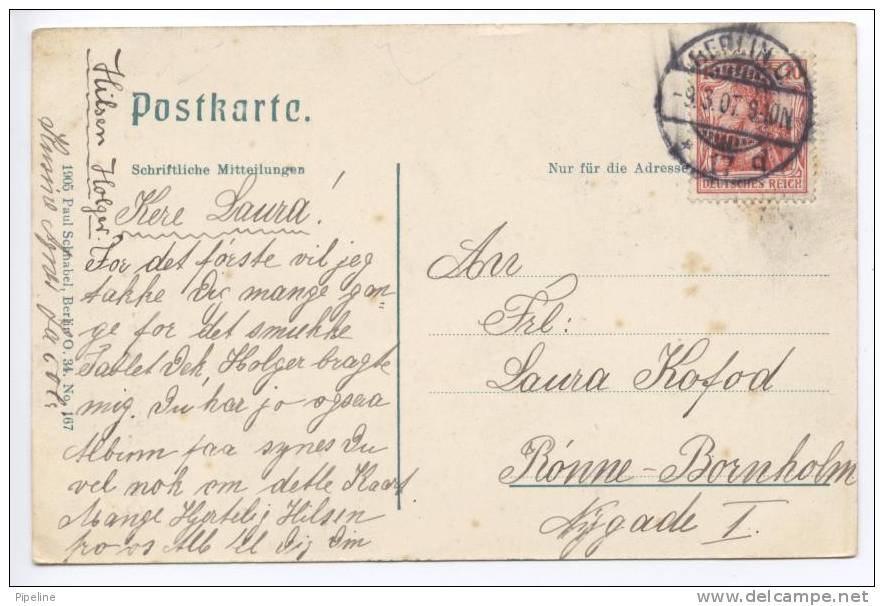 Postkarte.
Schriftliche Mitteilungen
Nur für die Adresse
BERLIN O
-9.3.07. 9-10N.
* 17 d
DEUTSCHES REICH
Kere Laura!
For det første vil jeg
takke Dig mange gan-
ge for det smukke
Holger bragte
mig. Du har jo ogsaa
Album saa synes Du
vel nok om dette Kaart
Mange Hjertelig Hilsen
fra os Alle til Dig Din
Hilsen Holger.
1905 Paul Schnabel, Berlin O. 34. No. 167
An
Frl:
Laura Kofod
Rönne-Bornholm
Nygade I.
Pipeline
delcampe.net